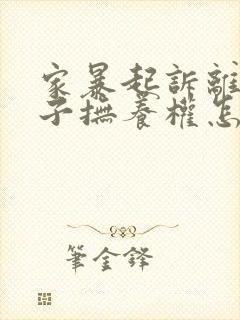 家暴起訴離
子撫養權怎
筆金鋒